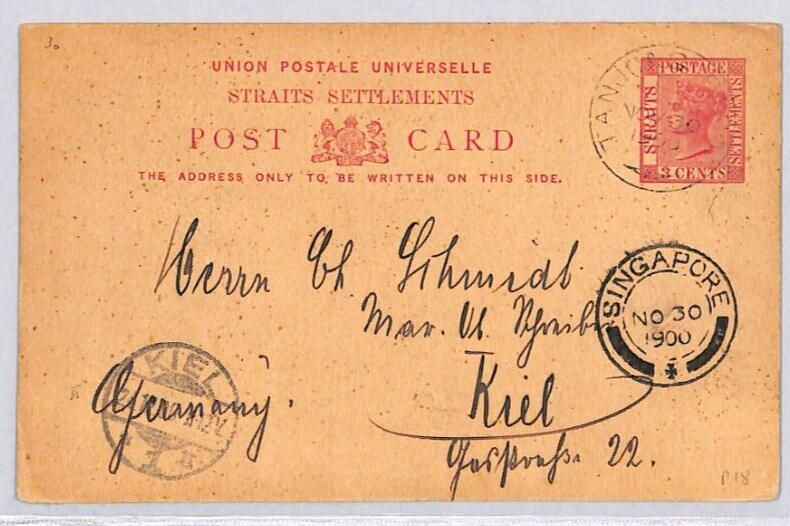 30
UNION POSTALE UNIVERSELLE
STRAITS SETTLEMENTS
POST CARD
THE ADDRESS ONLY TO BE WRITTEN ON THIS SIDE.
POSTAGE
STRAITS
SETTLEMENTS
3 CENTS
TANJ
NO 30
Herrn Ch Schmidt
Mar. Ob. Schreiber
Kiel
Germany.
22.
SINGAPORE
NO 30
1900
KIEL
1
P18